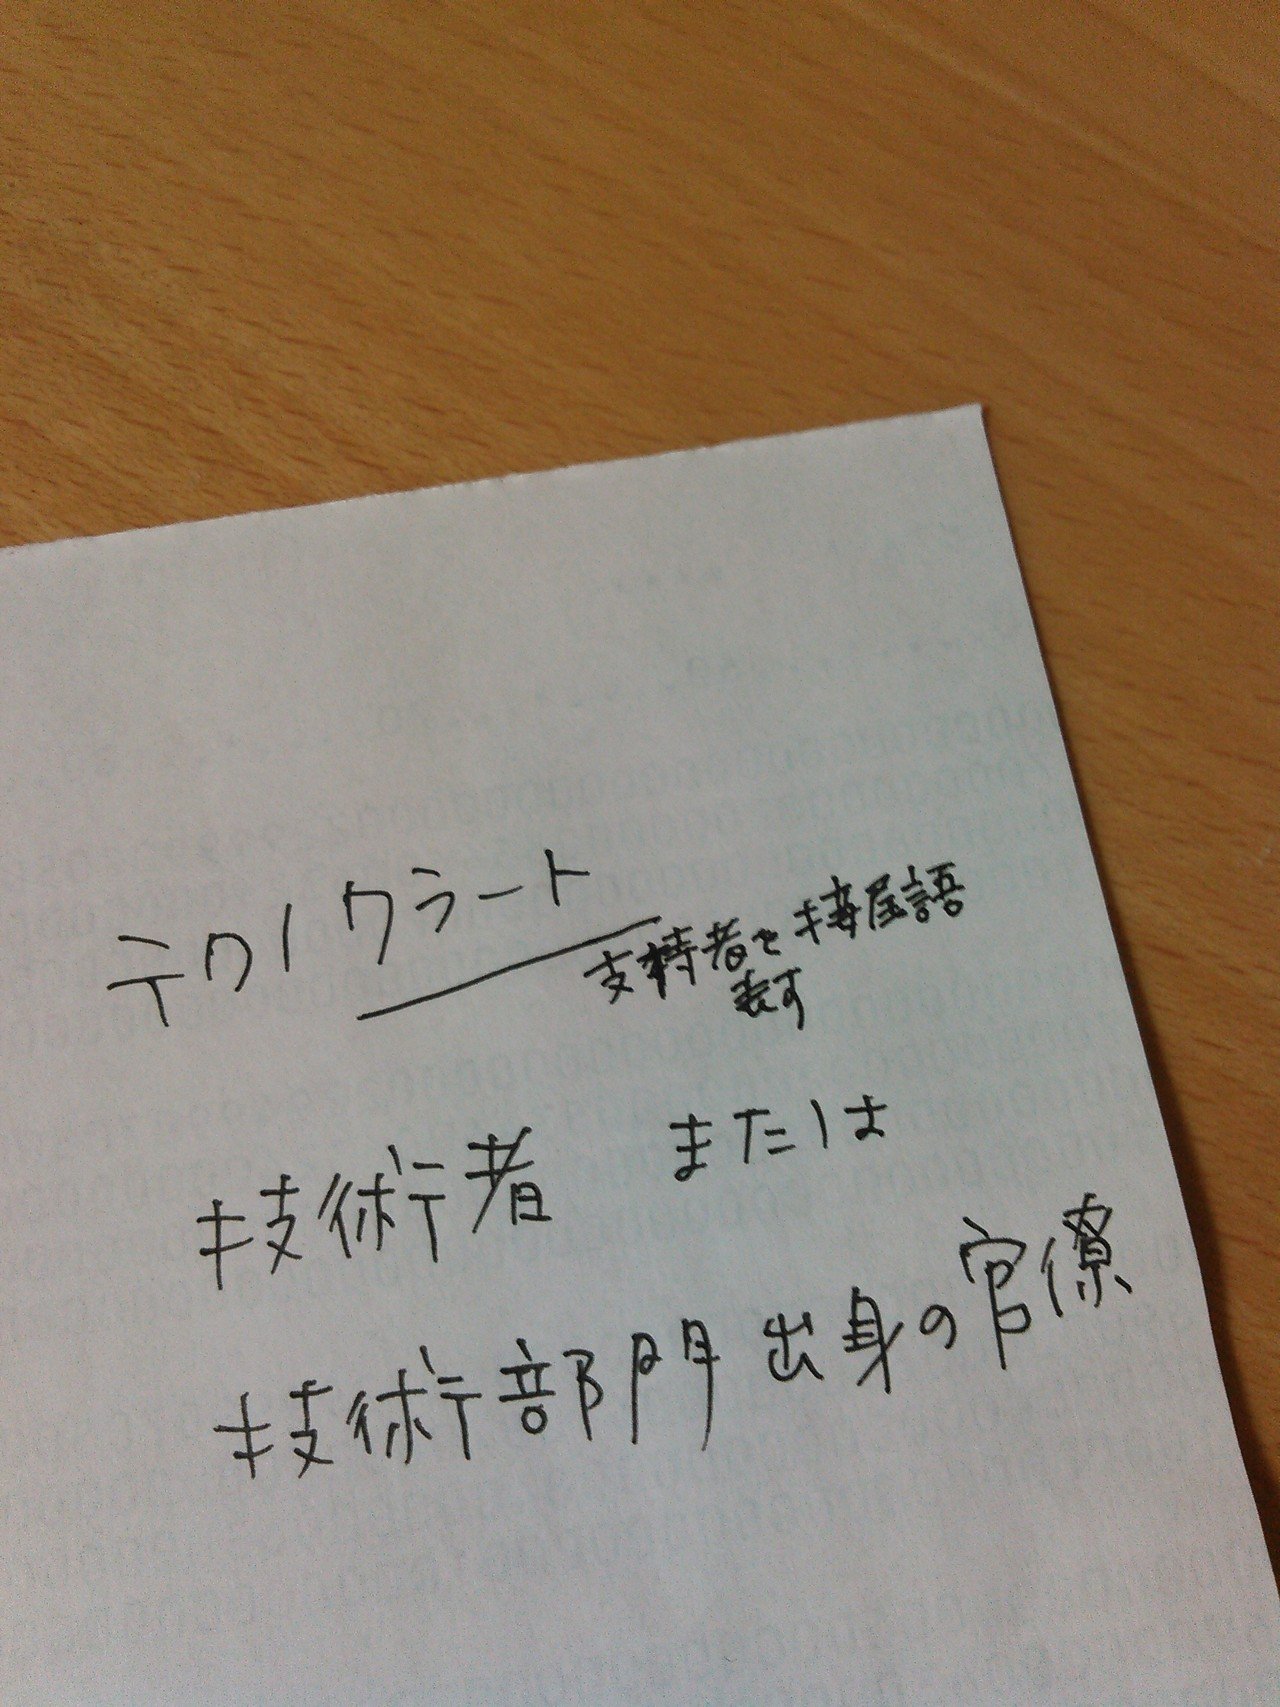 テクノクラート
支持者を接尾語
表す
技術者 または
技術部門出身の官僚